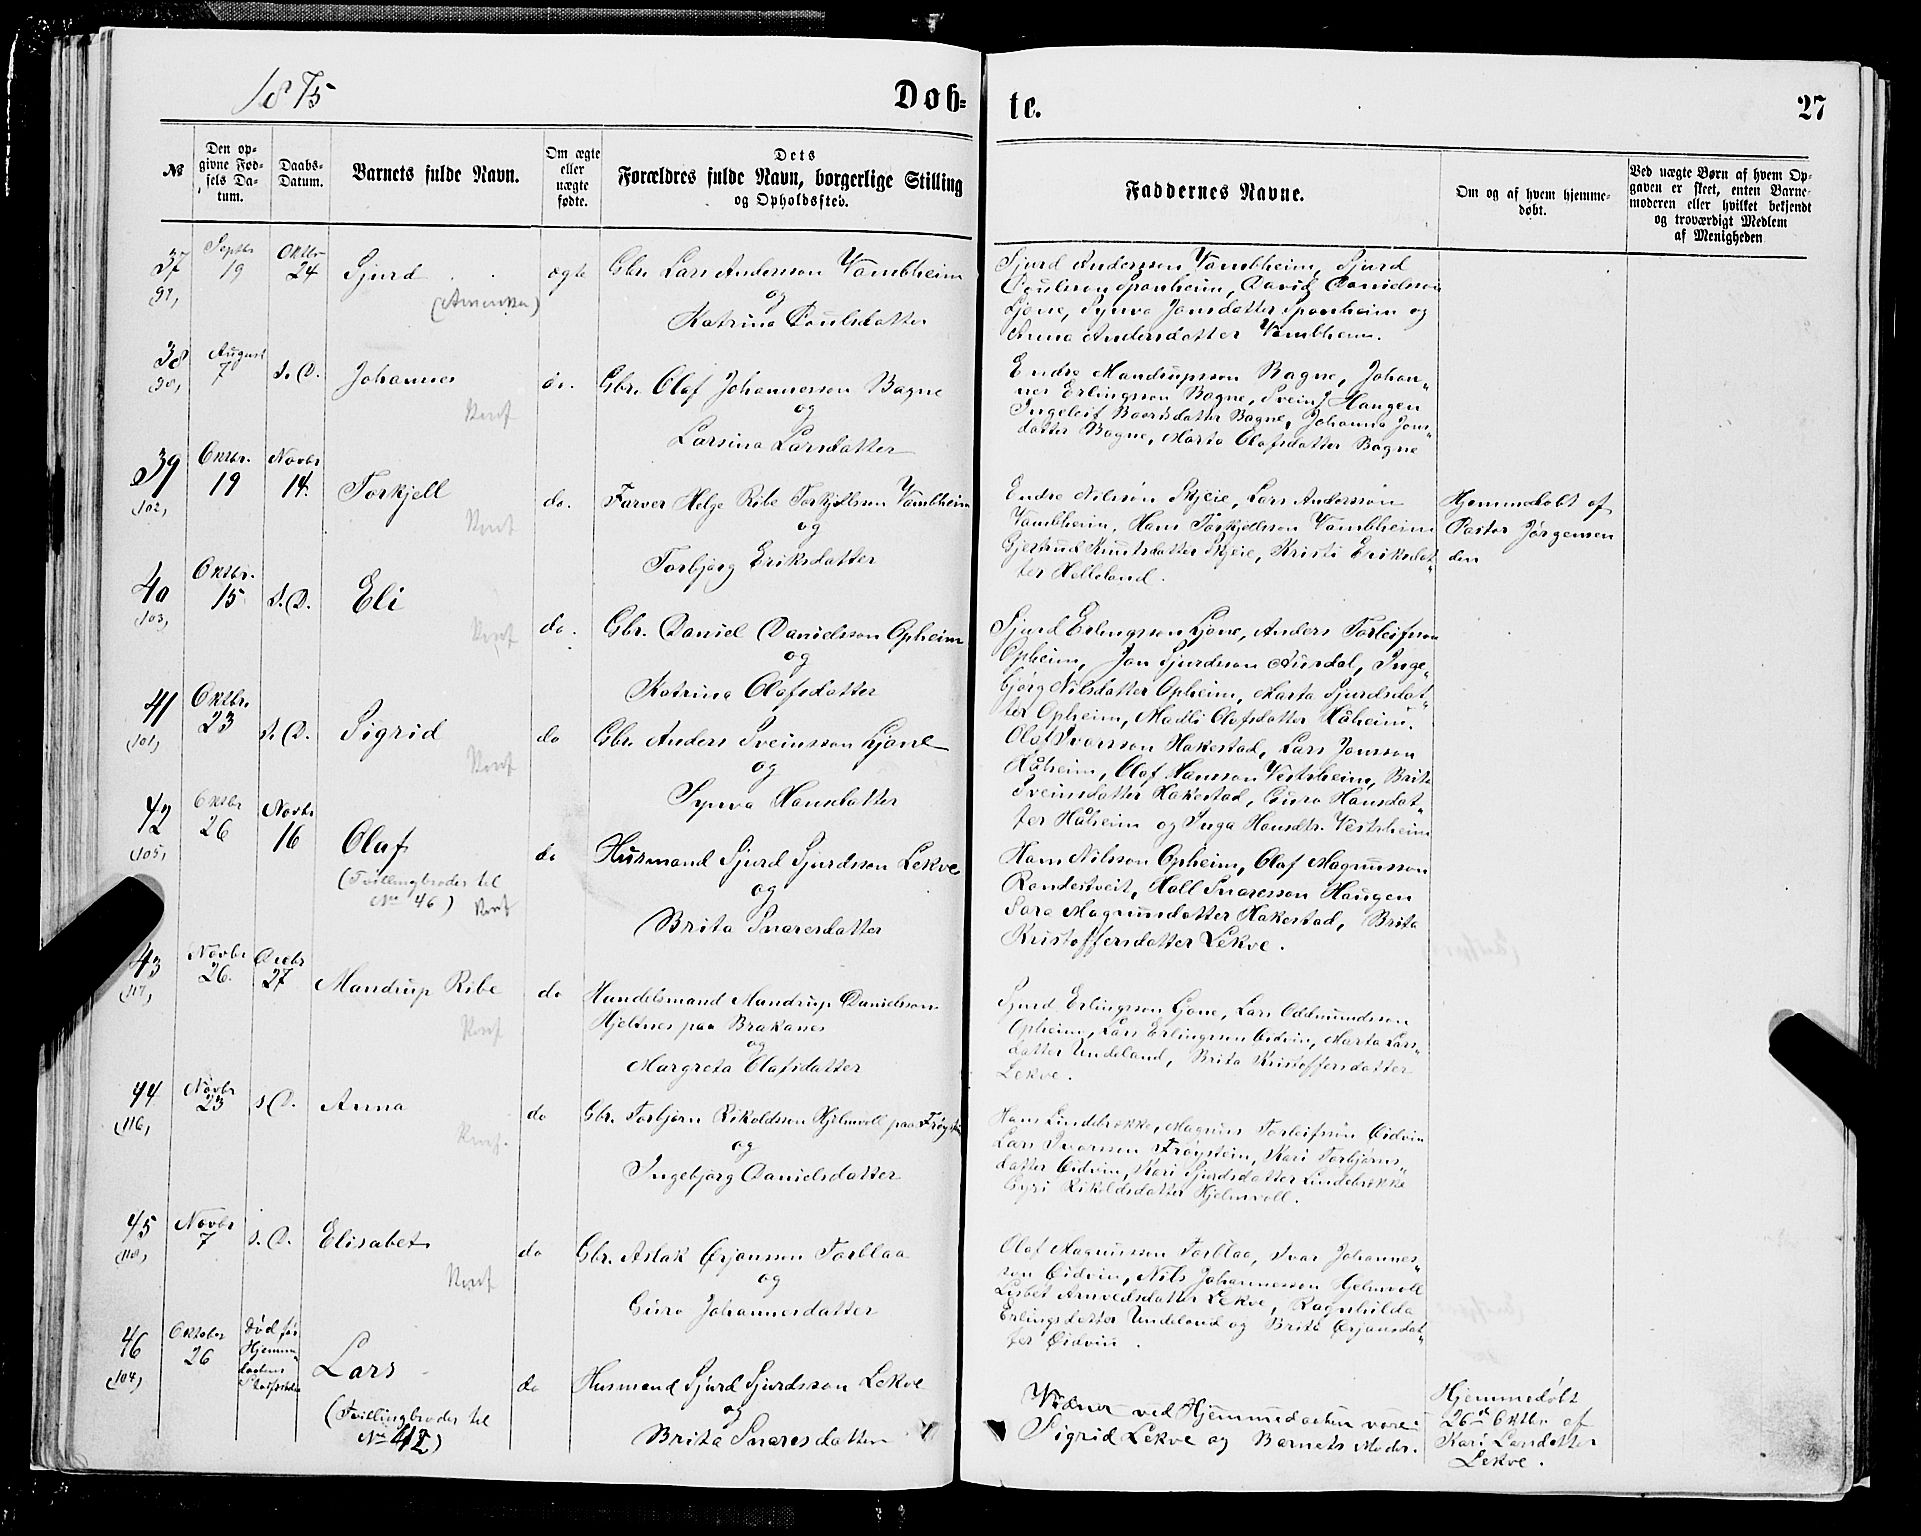 1875
Døb-
te.
27
№
Den op-
givne Fød-
sels Da-
tum.
Daabs-
Datum.
Barnets fulde Navn.
Om ægte
eller
uægte
fødte.
Dets
Forældres fulde Navn, borgerlige Stilling
og Opholdssted.
Faddernes Navne.
Om og af hvem hjemme-
døbt.
Ved uægte Børn af hvem Op-
gaven er skeet, enten Barne-
moderen eller hvilket bekjendt
og troværdigt Medlem
af Menigheden
37
Septbr
19
Oktbr
24
Sjurd
(Amerika)
ægte
Gbr. Lars Andersson Vambheim
og
Katrina Poulsdatter
Sjurd Andersson Vambheim, Sjurd
Poulsson Sponheim, David Danielsson
Ljone, Synva Jonsdatter Sponheim og
Anna Andersdatter Vambheim.
38
(90)
August
7
s. D.
Johannes
do.
Gbr. Olaf Johannesson Bagne
og
Larsina Larsdatter
Endre Mandrupsson Bagne, Johan-
nes Erlingsson Bagne, Svein Haugen
Ingeleif Baardsdatter Bagne, Johanna Jons-
datter Bagne, Marta Olafsdatter Bagne
39
(102)
Oktbr.
19
Novbr
14.
Torkjell
do.
Farver Helge Ribe Torkjellsson Vambheim
og
Torbjørg Eriksdatter
Endre Nilsson Skjeie, Lars Andersson
Vambheim, Hans Torkjellsson Vambheim
Gjertrud Knutsdatter Skjeie, Kristi Eriksdat-
ter Helleland.
Hjemmedøbt af
Pastor Jørgensen
den
40
(103)
Oktbr.
15
s. D.
Eli
do.
Gbr. Daniel Danielsson Opheim
og
Katrina Olafsdatter
Sjurd Erlingsson Ljone, Anders Torleifsson
Opheim, Jon Sjurdsson Aurdal, Inge-
bjørg Nilsdatter Opheim, Marta Sjurdsdat-
ter Opheim, Madli Olafsdatter Håheim.
41
(101)
Oktbr.
23
s. D.
Sigrid
do
Gbr. Anders Sveinsson Ljone
og
Synva Hansdatter
Olaf Ivarsson Hakestad, Lars Jonsson
Håheim, Olaf Hansson Vestrheim, Brita
Sveinsdatter Hakestad, Guro Hansdat-
ter Håheim og Inga Hansdtr. Vestrheim
42
(105)
Oktbr
26
Novbr
16
Olaf
(Tvillingbroder til
No 46)
do
Husmand Sjurd Sjurdsson Lekve
og
Brita Snaresdatter
Hans Nilsson Opheim, Olaf Magnusson
Rondestveit, Hall Snaresson Haugen
Sara Magnusdatter Hakestad, Brita
Kristoffersdatter Lekve.
43
(117)
Novbr
26.
Decbr
27
Mandrup Ribe
do
Handelsmand Mandrup Danielsson
Hjeltnes paa Brakanes
og
Margreta Olafsdatter
Sjurd Erlingsson Ljone, Lars Oddmundsson
Opheim, Lars Erlingsson Eidvin, Marta Lars-
datter Undeland, Brita Kristoffersdatter
Lekve.
44
(116)
Novbr
23
s. D.
Anna
do
Gbr. Torbjørn Rikoldsson Hjelmvoll paa Frøystein
og
Ingebjørg Danielsdatter
Hans Lindebrekke, Magnus Torleifsson Eidvin
Lars Ivarsson Frøystein, Kari Torbjørns-
datter Eidvin, Kari Sjurdsdatter Lindebrekke
Gyri Rikoldsdatter Hjelmvoll.
45
(118)
Novbr
7
s. D.
Elisabet
do
Gbr. Aslak Ørjansson Torblaa
og
Guro Johannesdatter
Olaf Magnusson Torblaa, Ivar Johannes-
son Eidvin, Nils Johannesson Hjelmvoll
Lisbet Arnvedsdatter Lekve, Ragnhilda
Erlingsdatter Undeland og Brita Ørjansdat-
ter Eidvin.
46
(104)
Oktober
26
Død før
Hjemme-
daabens
Stadfæstelse
Lars
(Tvillingbroder til
No 42)
do
Husmand Sjurd Sjurdsson Lekve
og
Brita Snaresdatter
Vidner ved Hjemmedaaben vare:
Sigrid Lekve og Barnets Moder.
Hjemmedøbt
26de Oktbr. af
Kari Larsdatter
Lekve.